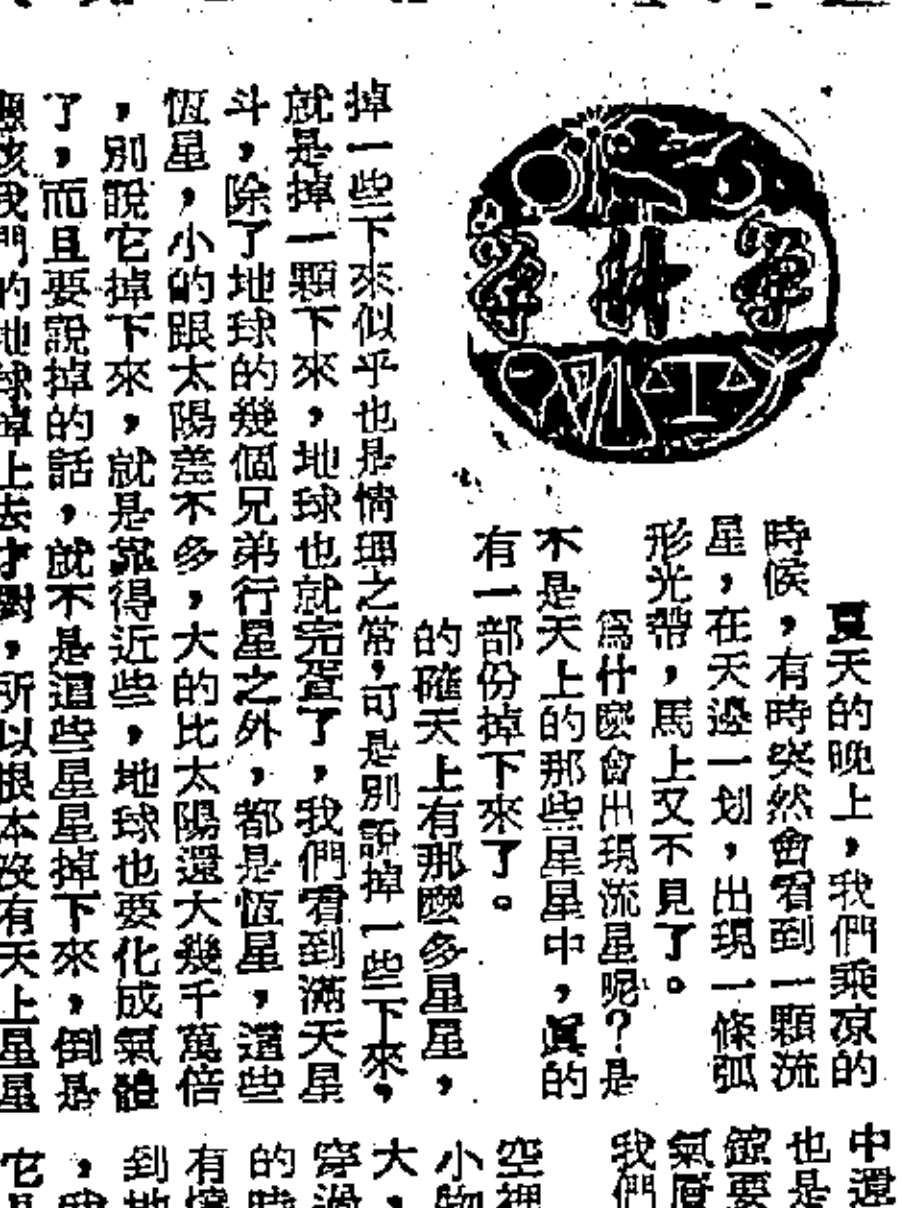 夏天的晚上，我們乘凉的
時候，有時突然會看到一顆流
星，在天邊一划，出現一條弧
形光帶，馬上又不見了。
爲什麽會出現流星呢？是
不是天上的那些星星中，眞的
有一部份掉下來了。
的確天上有那麽多星星，
掉一些下來似乎也是情理之常，可是別說掉一些下來，
就是掉一顆下來，地球也就完蛋了，我們看到滿天星
斗，除了地球的幾個兄弟行星之外，都是恆星，這些
恆星，小的跟太陽差不多，大的比太陽還大幾千萬倍
，別說它掉下來，就是靠得近些，地球也要化成氣體
了，而且要說掉的話，就不是這些星星掉下來，倒是
應該我們的地球掉上去才對，所以根本沒有天上星星
中還
也是
氣層
我們
空裡
小物
大，
穿過
的時
有
到地
，我
它